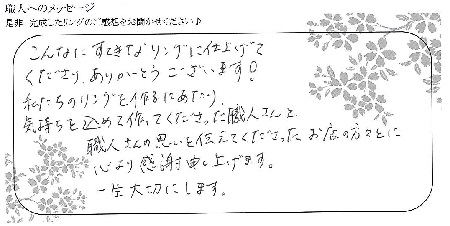 職人へのメッセージ
是非 完成したリングのご感想をお聞かせください♪
こんなにすてきなリングに仕上げて
くださり、ありがとうございます!
私たちのリングを作るにあたり、
気持ちを込めて作ってくださった職人さんと
職人さんの思いを伝えてくださったお店の方々とに
心より感謝申し上げます。
一生大切にします。